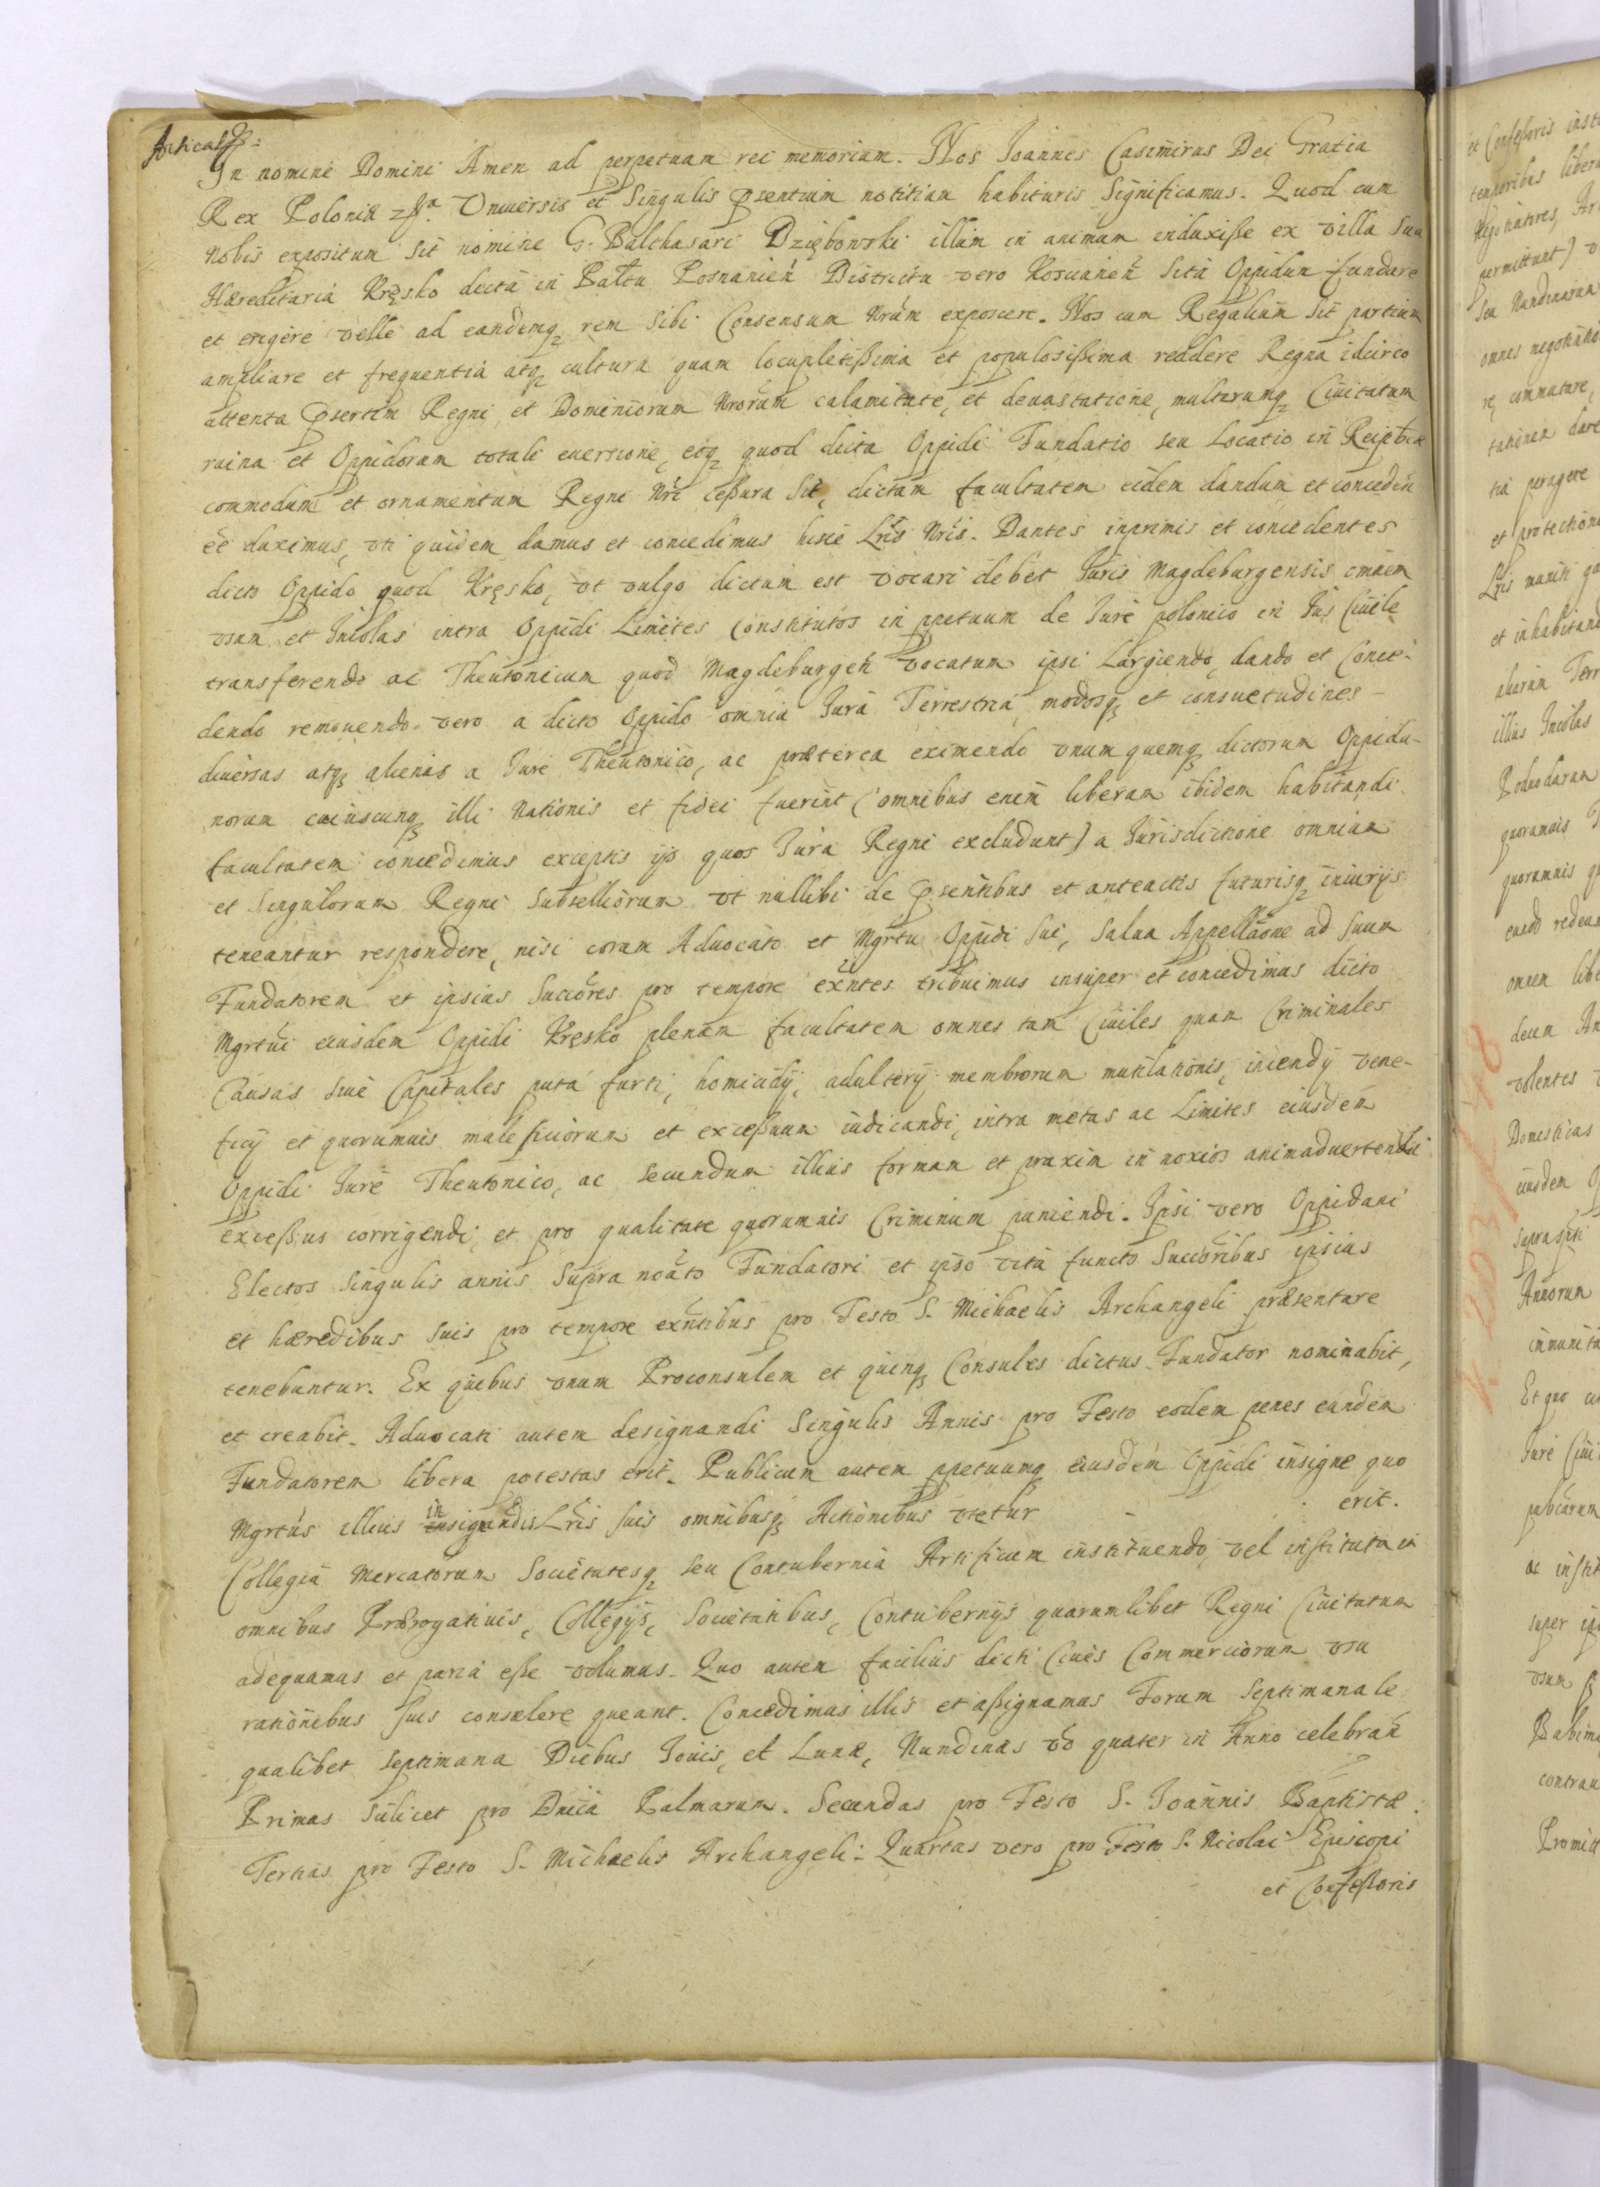 In nomine Domini Amen ad perpetuam rei memoriam. Nos Joannes Casimirus Dei Gratia
Rex Poloniæ Vniuersis et Singulis pñsentium notitiam habituris Significamus. Quod cum
Nobis expositum sit nomine G. Balthasari Dziębowski illum in animum induxiße ex villa Sua
Hæreditaria Kręsko dicta in Palttu Posnanień Districtu vero Koscianeń sita Oppidum fundare
et erigere velle ad eandemq rem sibi Consensum Nrum exposcere. Nos cum Regalium sit partium
ampliare et frequentia atq cultura quam locupletißima et populosißima reddere Regna idcirco
attenta pñsertim Regni et Dominiorum Nrorum calamitate, et deuastatione, multarumq Ciuitatum
ruina et Oppidorum totali euersione, eoq quod dicta Oppidi Fundatio seu Locatio in Reiptcæ
commodum et ornamentum Regni Nri ceßura sit, dictam facultatem eidem dandum et conceden
ee duximus, vti quidem damus et concedimus hisce Lris Nris. Dantes inprimis et concedentes
dicto Oppido quod Kręsko, vt vulgo dictum est vocari debet Juris Magdeburgensis omnem
vsum et Incolas intra Oppidi Limites Constitutos in ppetuum de Jure polonico in Jus Ciuile
transferendo ac Theutonicum quod Magdeburgeń vocatum ipsi Largiendo, dando et Conce-
dendo remouendo vero a dicto Oppido omnia Jura Terrestria, modosq et consuetudines
diuersas atq alienas a Jure Theutonico, ac præterea eximendo vnumquemq dictorum Oppida-
norum cuiuscunq illi Nationis et fidei fuerint (omnibus enim liberam ibidem habitandi
facultatem concedimus exceptis ijs quos Jura Regni excludunt) a Jurisdictione omnium
et Singulorum Regni Subselliorum vt nullibi de pñsentibus et anteactis futurisq iniurijs
teneantur respondere, nisi coram Aduocato et Mgrtu Oppidi sui, Salua Appellaone ad Suum
Fundatorem et ipsius Succores pro tempore exntes tribuimus insuper et concedimus dicto
Mgrtui eiusdem Oppidi Kręsko plenam facultatem omnes tam Ciuiles quam Criminales
Causas siue Capitales puta furti, homicidij, adulterij membrorum mutilationis, incendij vene-
ficij et quorumuis maleficiorum et exceßuum iudicandi, intra metas ac Limites eiusdem
Oppidi Jure Theutonico, ac secundum illius formam et praxim in noxios animaduertendi
exceßus corrigendi, et pro qualitate quorumuis Criminum puniendi. Ipsi vero Oppidani
Electos singulis annis Supra noato Fundatori et ipso vita functo Succoribus ipsius
et hæredibus suis pro tempore exntibus pro Festo S. Michaelis Archangeli præsentare
tenebuntur. Ex quibus vnum Proconsulem et quinq Consules dictus Fundator nominabit,
et creabit. Aduocati autem designandi Singulis Annis pro Festo eodem penes eundem
Fundatorem libera potestas erit. Publicum autem ppetuumq eiusdem Oppidi insigne quo
Mgrtus illius insignandis Lris suis omnibusq Actionibus vtetur erit.
Collegia Mercatorum Societatesq seu Contubernia Artificum instituendo vel instituta in
omnibus Prærogatiuis, Collegijs, Societatibus, Contubernijs quarumlibet Regni Ciuitatum
adequamus et paria eße volumus. Quo autem facilius dicti Ciues Commerciorum vsu
rationibus suis consulere queant. Concedimus illis et aßignamus Forum Septimanale
qualibet septimana Diebus Jouis, et Lunæ, Nundinas vo quater in Anno celebrań
Primas Scilicet pro Dnica Palmarum. Secundas pro Festo S. Joannis Baptistæ.
Tertias pro Festo S. Michaelis Archangeli. Quartas vero pro Festo S. Nicolai Episcopi
et Confeßoris